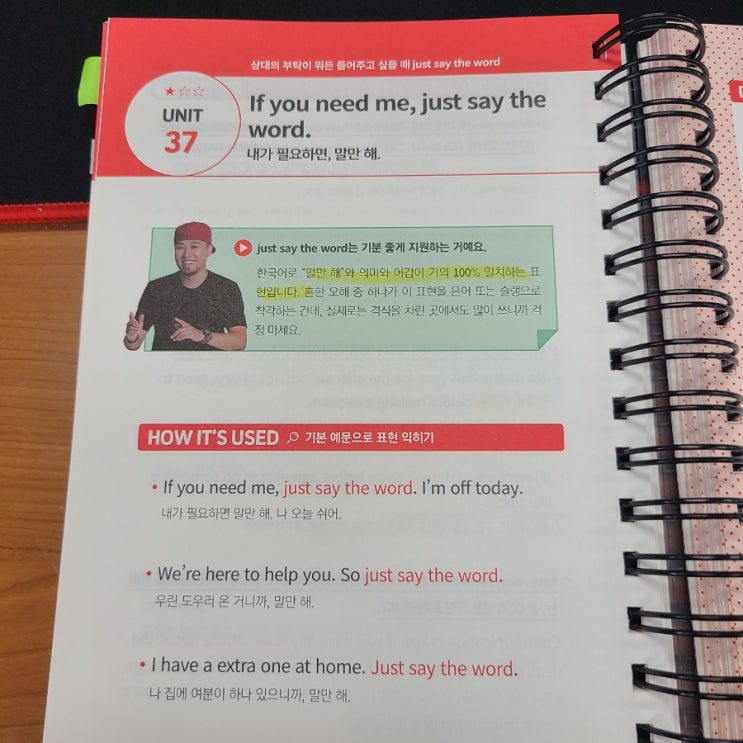 상대의 부탁이 뭐든 들어주고 싶을 때 just say the word
★☆☆
UNIT
37
If you need me, just say the
word.
내가 필요하면, 말만 해.
just say the word는 기분 좋게 지원하는 거예요.
한국어로 "말만 해"와 의미와 어감이 거의 100% 일치하는 표
현입니다. 흔한 오해 중 하나가 이 표현을 은어 또는 슬랭으로
착각하는 건데, 실제로는 격식을 차린 곳에서도 많이 쓰니까 걱
정 마세요.
HOW IT'S USED 기본 예문으로 표현 익히기
• If you need me, just say the word. I'm off today.
내가 필요하면 말만 해, 나 오늘 쉬어.
• We're here to help you. So just say the word.
우린 도우러 온 거니까, 말만 해.
• I have a extra one at home. Just say the word.
나 집에 여분이 하나 있으니까, 말만 해.